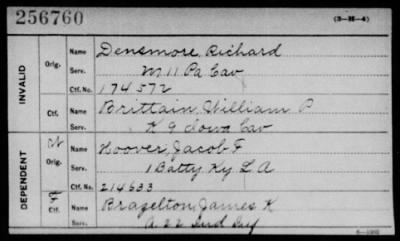 256760 (3-H-4)
INVALID Orig. Name Densmore, Richard
Serv. M 11 Pa Cav
Ctf. No. 174572
Ctf. Name Brittain, William P
Serv. K 9 Iowa Cav
DEPENDENT Orig. Name Hoover, Jacob F
Serv. 1 Batty Ky L A
Ctf. No. 214633
Ctf. Name Brazelton, James K
Serv. A 22 Ind Inf